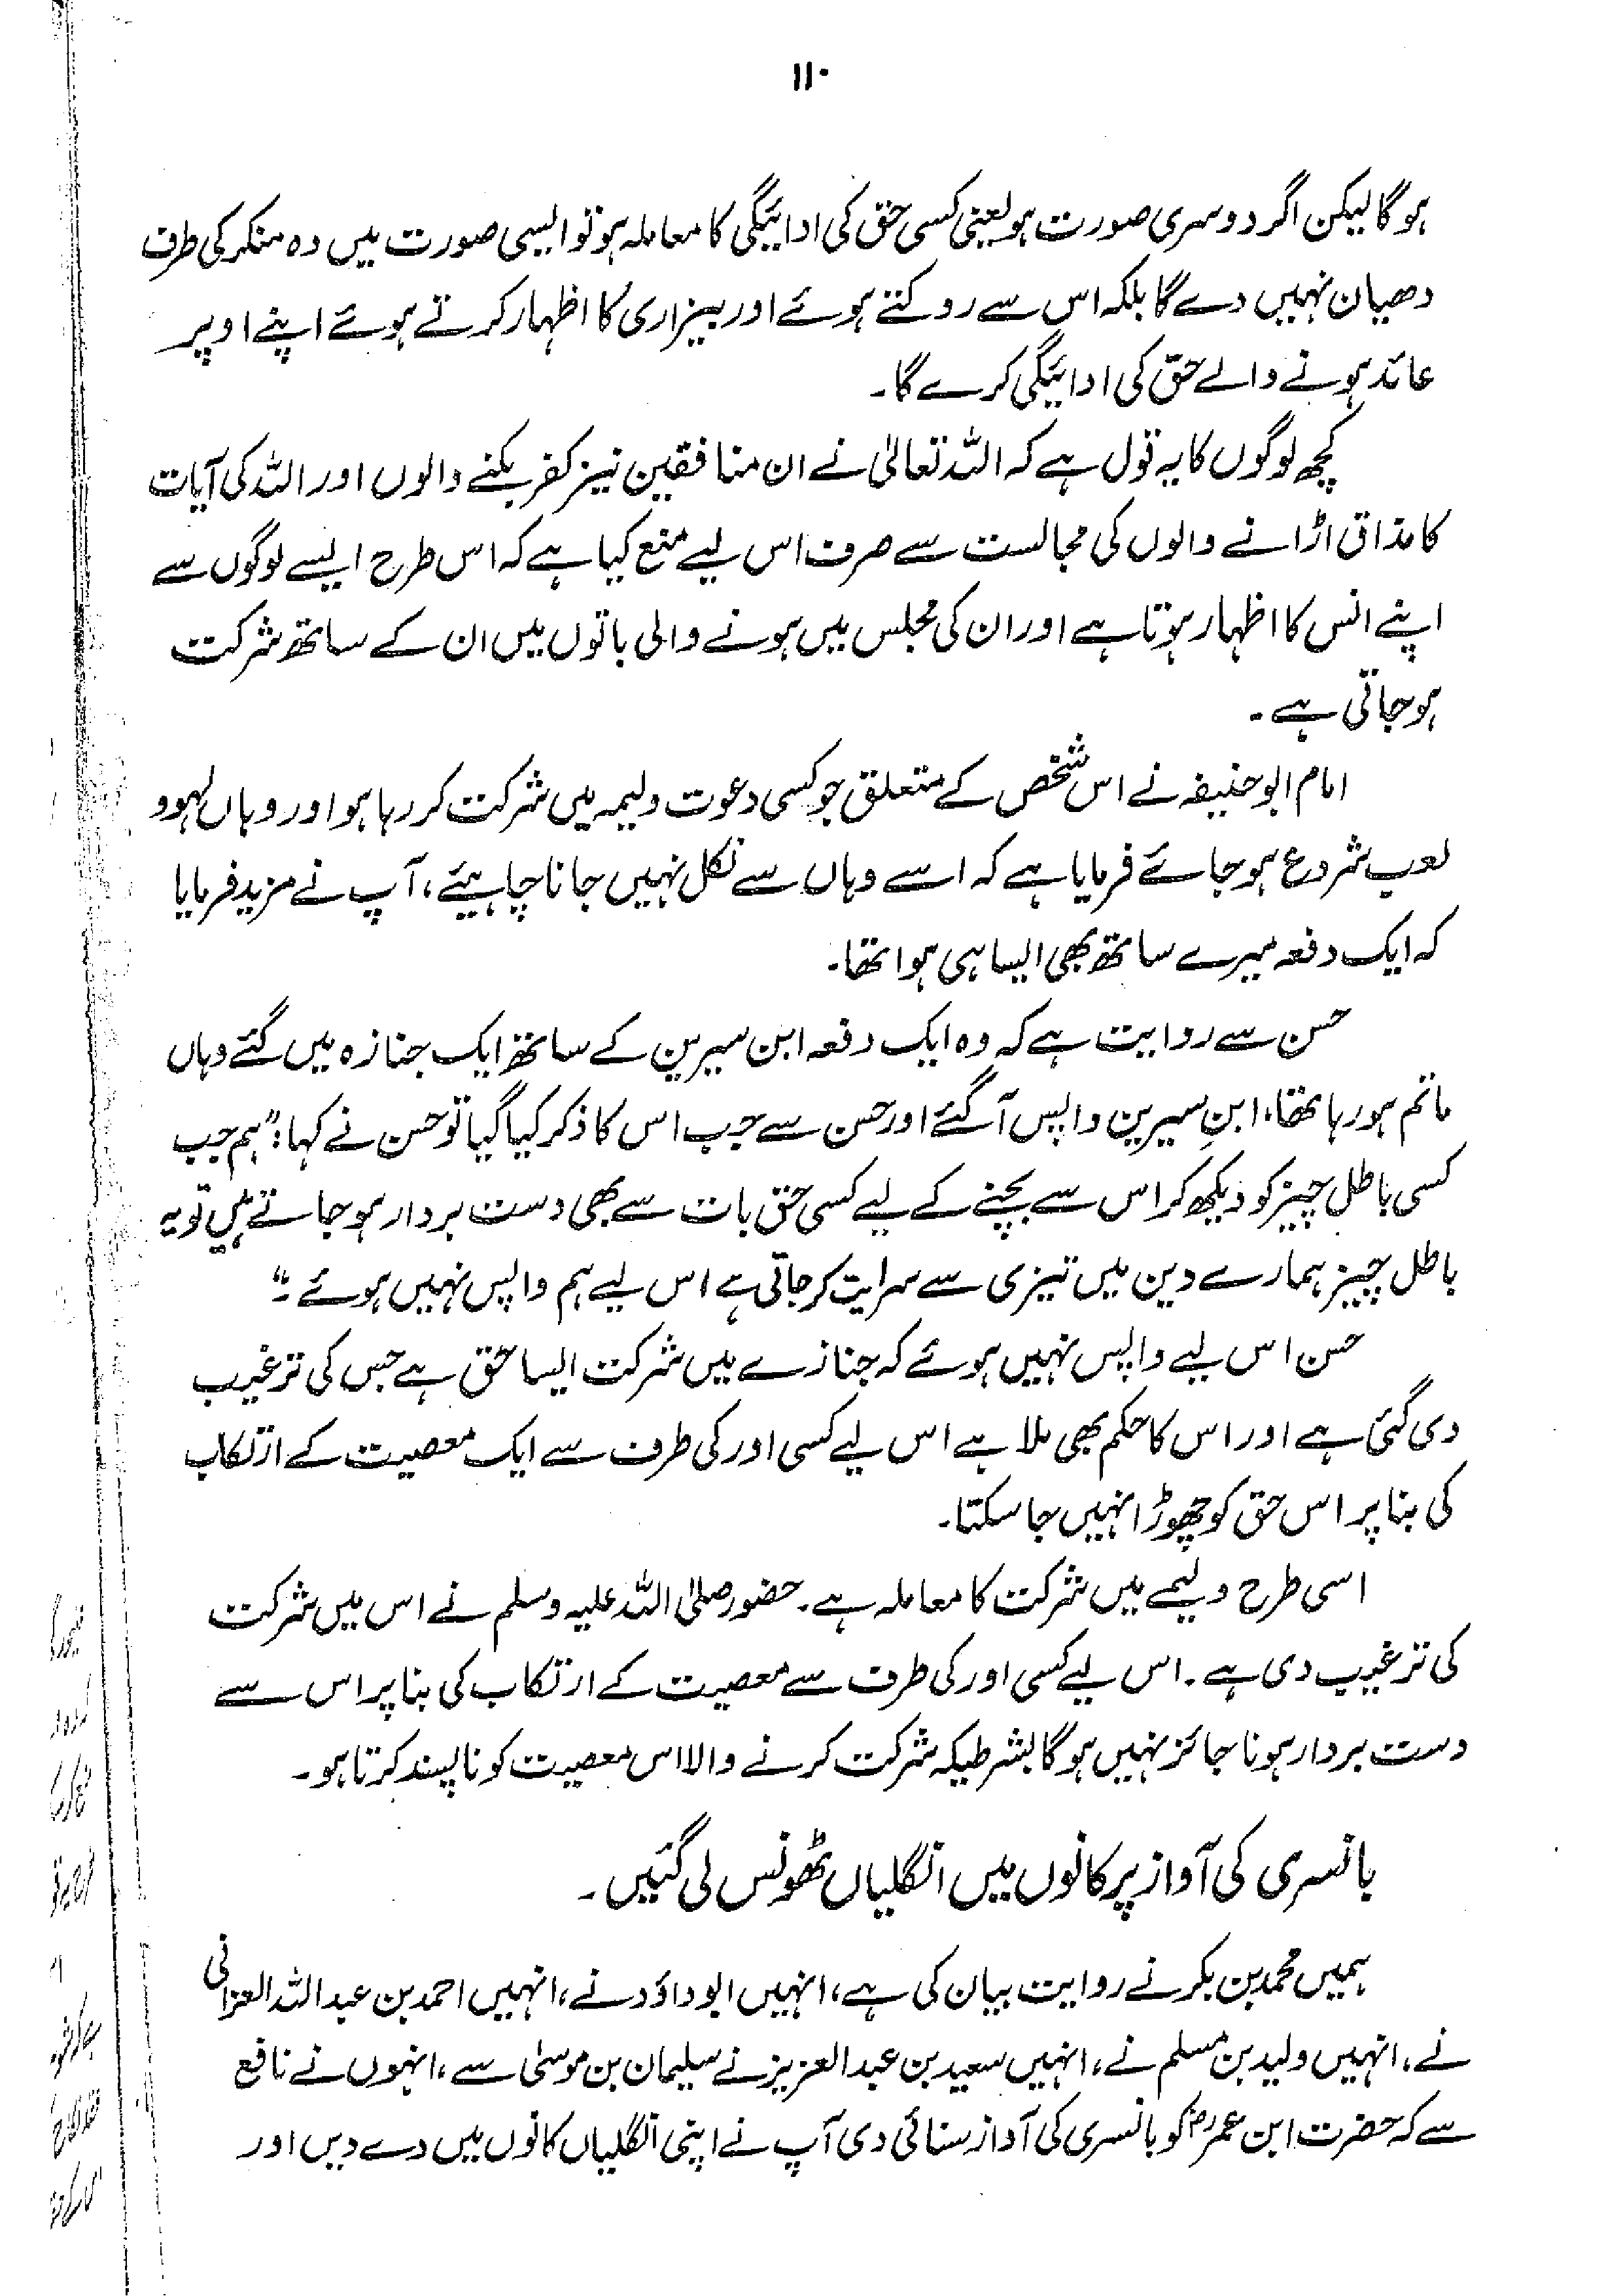 ۱۱۰
ہوگا لیکن اگر دوسری صورت ہو یعنی کسی حق کی ادائیگی کا معاملہ ہو تو ایسی صورت میں وہ منکر کی طرف
دھیان نہیں دے گا بلکہ اس سے روکتے ہوئے اور بیزاری کا اظہار کرتے ہوئے اپنے اوپر
عائد ہونے والے حق کی ادائیگی کرے گا۔
کچھ لوگوں کا یہ قول ہے کہ اللہ تعالیٰ نے ان منافقین نیز کفر بکنے والوں اور اللہ کی آیات
کا مذاق اڑانے والوں کی مجالست سے صرف اس لیے منع کیا ہے کہ اس طرح ایسے لوگوں سے
اپنے انس کا اظہار ہوتا ہے اور ان کی مجلس میں ہونے والی باتوں میں ان کے ساتھ شرکت
ہو جاتی ہے۔
امام ابو حنیفہ نے اس شخص کے متعلق جو کسی دعوت ولیمہ میں شرکت کر رہا ہو اور وہاں لہو و
لعب شروع ہو جائے فرمایا ہے کہ اسے وہاں سے نکل نہیں جانا چاہیئے، آپ نے مزید فرمایا
کہ ایک دفعہ میرے ساتھ بھی ایسا ہی ہوا تھا۔
حسن سے روایت ہے کہ وہ ایک دفعہ ابن سیرین کے ساتھ ایک جنازہ میں گئے وہاں
ماتم ہو رہا تھا، ابنِ سیرین واپس آگئے اور حسن سے جب اس کا ذکر کیا گیا تو حسن نے کہا: "ہم جب
کسی باطل چیز کو دیکھ کر اس سے بچنے کے لیے کسی حق بات سے بھی دست بردار ہو جاتے ہیں تو یہ
باطل چیز ہمارے دین میں تیزی سے سرایت کر جاتی ہے اس لیے ہم واپس نہیں ہوئے۔"
حسن اس لیے واپس نہیں ہوئے کہ جنازے میں شرکت ایسا حق ہے جس کی ترغیب
دی گئی ہے اور اس کا حکم بھی ملا ہے اس لیے کسی اور کی طرف سے ایک معصیت کے ارتکاب
کی بنا پر اس حق کو چھوڑا نہیں جا سکتا۔
اسی طرح ولیمے میں شرکت کا معاملہ ہے۔ حضور صلی اللہ علیہ وسلم نے اس میں شرکت
کی ترغیب دی ہے۔ اس لیے کسی اور کی طرف سے معصیت کے ارتکاب کی بنا پر اس سے
دست بردار ہونا جائز نہیں ہوگا بشرطیکہ شرکت کرنے والا اس معصیت کو ناپسند کرتا ہو۔
بانسری کی آواز پر کانوں میں انگلیاں ٹھونس لی گئیں۔
ہمیں محمد بن بکر نے روایت بیان کی ہے، انہیں ابو داؤد نے، انہیں احمد بن عبد اللہ العزانی
نے، انہیں ولید بن مسلم نے، انہیں سعید بن عبد العزیز نے سلیمان بن موسیٰ سے، انہوں نے نافع
سے کہ حضرت ابن عمرؓ کو بانسری کی آواز سنائی دی آپ نے اپنی انگلیاں کانوں میں دے دیں اور